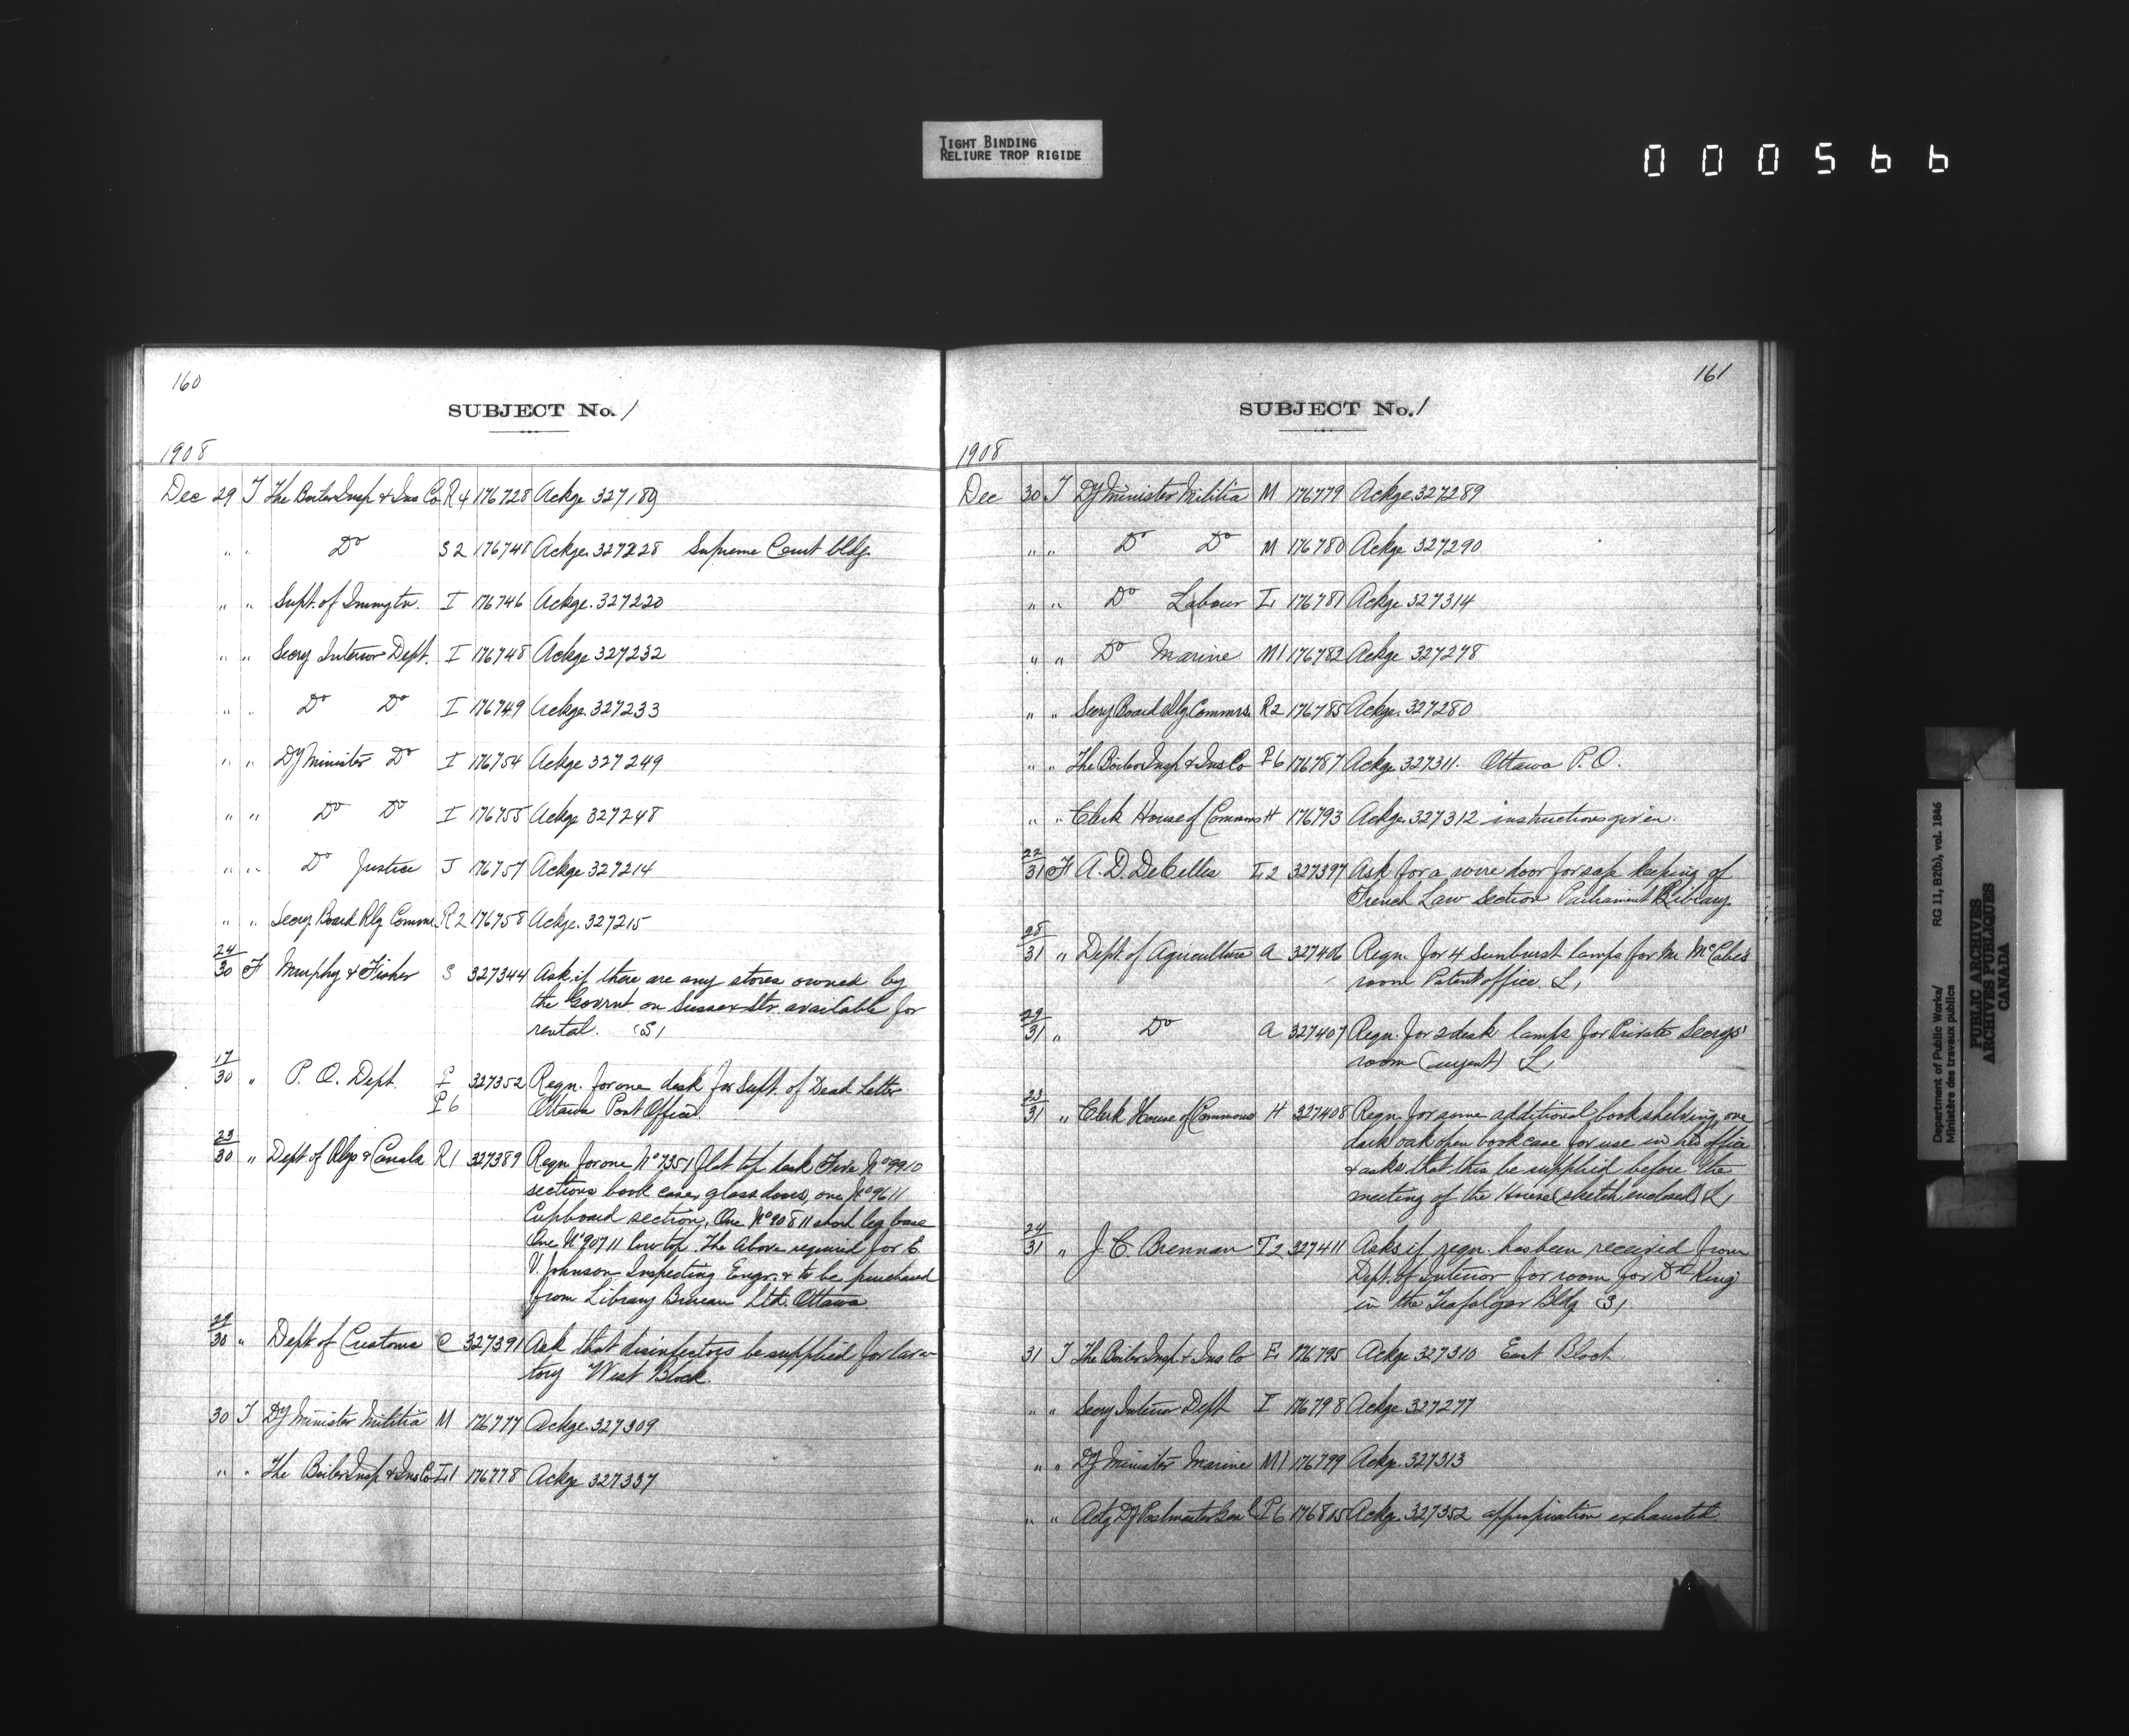 TIGHT BINDING
RELIURE TROP RIGIDE
000566
160
SUBJECT No. 1
1908
Dec 29 T The Boiler Insp & Ins Co R4 176728 Ackge 327189
" " Do S2 176741 Ackge. 327228 Supreme Court bldg.
" " Supt. of Immgtn. I 176746 Ackge. 327220
" " Secry Interior Dept. I 176748 Ackge 327232
" " Do Do I 176749 Ackge. 327233
" " Dy Minister Do I 176754 Ackge 327249
" " Do Do I 176755 Ackge 327248
" " Do Justice J 176757 Ackge 327214
" " Secry Board Rly Commr. R2 176758 Ackge. 327215
24/30 F Murphy & Fisher S 327344 Ask if there are any stores owned by
the Govrnt. on Sussex Str. available for
rental. (S)
17/30 " P. O. Dept. P 327352 Reqn. for one desk for Supt. of Dead Letter
P6 Ottawa Post Office
23/30 " Dept of Rlys & Canals R1 327389 Reqn for one No 7351 flat top desk Five No 9910
sections book case, glass doors, one No 9611
Cupboard section, One No 90811 short leg base
One No 90711 low top. The above required for E.
V. Johnson Inspecting Engr. & to be purchased
from Library Bureau Ltd. Ottawa
29/30 " Dept of Customs C 327391 Ask that disinfectors be supplied for lava-
tory West Block.
30 T Dy Minister Militia M 176777 Ackge. 327309
" " The Boiler Insp & Ins Co L1 176778 Ackge 327337
161
SUBJECT No. 1
1908
Dec 30 T Dy Minister Militia M 176779 Ackge. 327289
" " Do Do M 176780 Ackge 327290
" " Do Labour L1 176781 Ackge 327314
" " Do Marine M1 176782 Ackge 327278
" " Secry Board Rly. Commrs. R2 176785 Ackge. 327280
" " The Boiler Insp & Ins Co P6 176787 Ackge 327311. Ottawa P.O.
" " Clerk House of Commons H 176793 Ackge. 327312 instructions given.
22/31 F A. D. DeCelles L2 327397 Ask for a wire door for safe keeping of
French Law section Parliament Library
28/31 " Dept. of Agriculture A 327406 Reqn. for 4 sunburst lamps for Mr McCabe's
room Patent office L1
29/31 " Do A 327407 Reqn. for 2 desk lamps for Private Secrys'
room (urgent) L1
23/31 " Clerk House of Commons H 327408 Reqn. for some additional book shelving, one
dark oak open book case for use in his office
& asks that this be supplied before the
meeting of the House (sketch enclosed) L1
24/31 " J. C. Brennan T2 327411 Asks if reqn. has been received from
Dept. of Interior for room for Dr King
in the Trafalgar Bldg (3)
31 T The Boiler Insp & Ins Co E1 176795 Ackge 327310 East Block
" " Secry Interior Dept I 176798 Ackge. 327277
" " Dy Minister Marine M1 176799 Ackge. 327313
" " Actg Dy Postmaster Genl P6 176805 Ackge. 327352 appropriation exhausted.
Department of Public Works/ RG 11, B2(b), vol. 1846
Ministère des travaux publics
PUBLIC ARCHIVES
ARCHIVES PUBLIQUES
CANADA